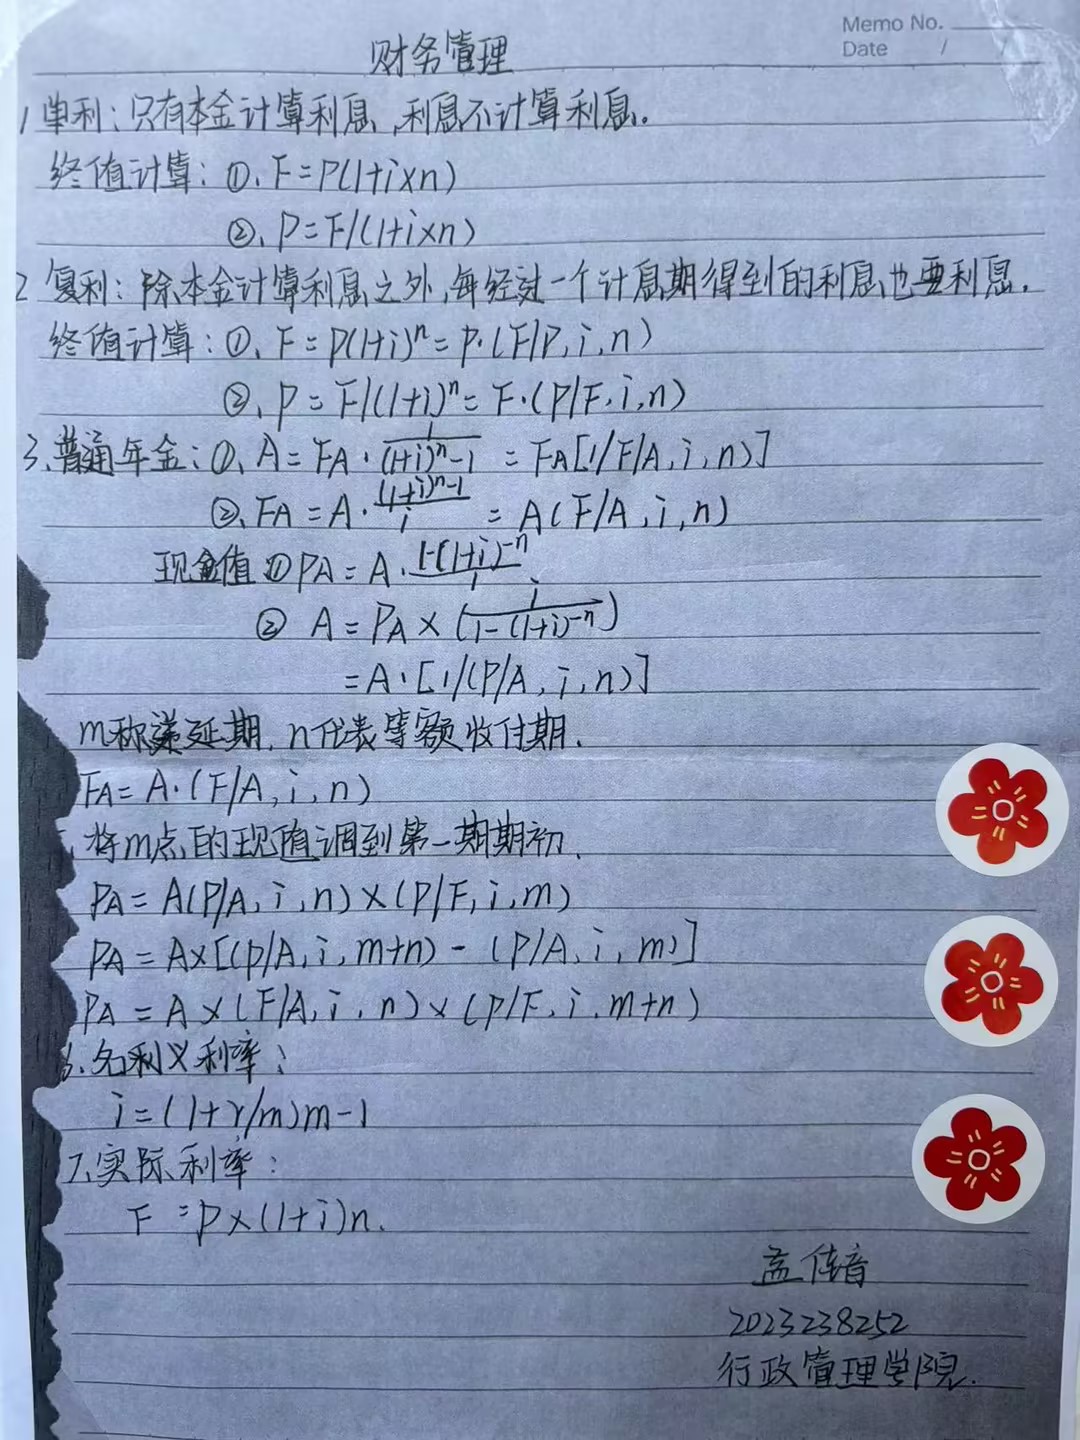 Memo No.
Date / /
财务管理
1 单利：只有本金计算利息，利息不计算利息。
终值计算：①、F=P(1+i×n)
②、P=F/(1+i×n)
2 复利：除本金计算利息之外，每经过一个计息期得到的利息也要利息.
终值计算：①、F=P(1+i)ⁿ=P·(F/P,i,n)
②、P=F/(1+i)ⁿ=F·(P/F,i,n)
3、普通年金：①、A=FA·1/((1+i)ⁿ-1) =FA[1/F/A,i,n)]
②、FA=A·((1+i)ⁿ-1)/i =A(F/A,i,n)
现金值①PA=A·(1-(1+i)⁻ⁿ)/i
② A=PA×(i/(1-(1+i)⁻ⁿ))
=A·[1/(P/A,i,n)]
m称递延期，n代表等额收付期.
FA=A·(F/A,i,n)
将m点的现值调到第一期期初.
PA=A(P/A,i,n)×(P/F,i,m)
PA=A×[(P/A,i,m+n)-(P/A,i,m)]
PA=A×(F/A,i,n)×(P/F,i,m+n)
6.名利义利率：
i=(1+r/m)m-1
7、实际利率：
F=P×(1+i)n.
2023238252
行政管理学院.